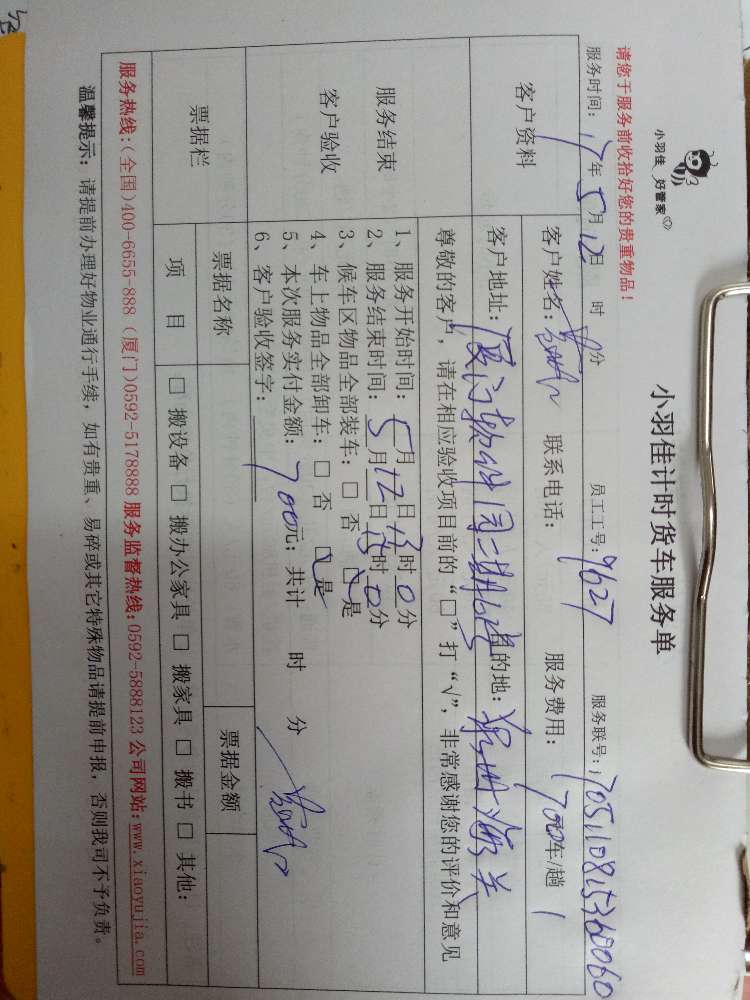 小羽佳 好管家
小羽佳计时货车服务单
请您于服务前收拾好您的贵重物品！
服务时间：17年5月12日 时 分 员工工号：9627 服务联号：1705110815360060
客户资料
客户姓名： 联系电话： 服务费用：700元车/趟
客户地址：厦门软件园二期 目的地：泉州海关
尊敬的客户，请在相应验收项目前的“□”打“√”，非常感谢您的评价和意见
服务结束
客户验收
1、服务开始时间：5月12日13时0分
2、服务结束时间：5月12日 时0分
3、候车区物品全部装车：□ 否 □ 是
4、车上物品全部卸车：□ 否 □ 是
5、本次服务实付金额：700元；共计 时 分
6、客户验收签字：
票据栏
票据名称 票据金额
项 目 □ 搬设备 □ 搬办公家具 □ 搬家具 □ 搬书 □ 其他：
服务热线：(全国)400-6655-888 (厦门)0592-5178888 服务监督热线：0592-5888123 公司网站：www.xiaoyujia.com
温馨提示：请提前办理好物业通行手续，如有贵重、易碎或其它特殊物品请提前申报，否则我司不予负责。